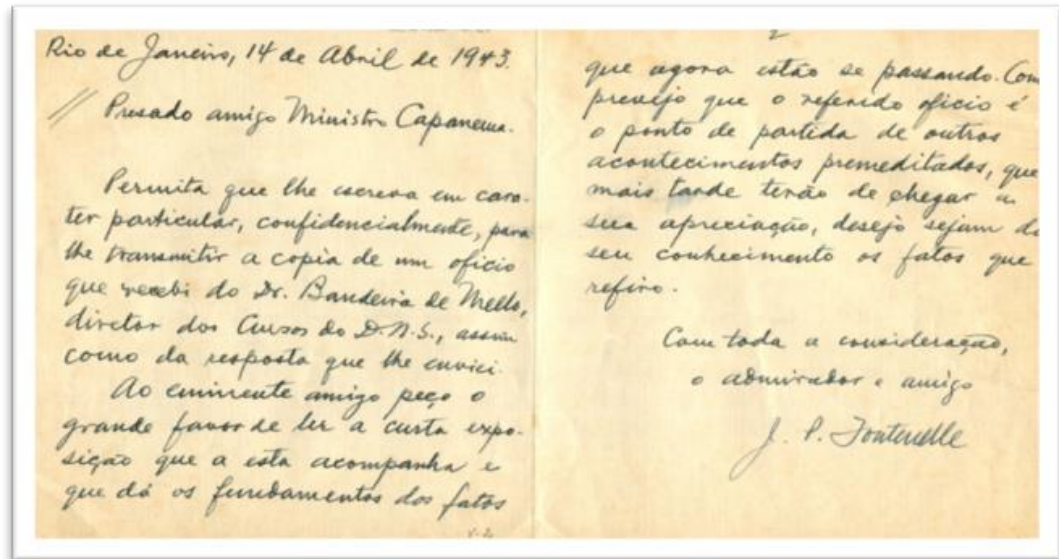 Rio de Janeiro, 14 de Abril de 1943.
Presado amigo Ministro Capanema.
Permita que lhe escreva em cara-
ter particular, confidencialmente, para
lhe transmitir a copia de um oficio
que recebi do Dr. Bandeira de Mello,
diretor dos Cursos do D.N.S., assim
como da resposta que lhe enviei.
Ao eminente amigo peço o
grande favor de ler a curta expo-
sição que a esta acompanha e
que dá os fundamentos dos fatos
2
que agora estão se passando. Com
prevejo que o referido oficio é
o ponto de partida de outros
acontecimentos premeditados, que
mais tarde terão de chegar a
sua apreciação, desejo sejam do
seu conhecimento os fatos que
refiro.
Com toda a consideração,
o admirador e amigo
J. P. Fontenelle